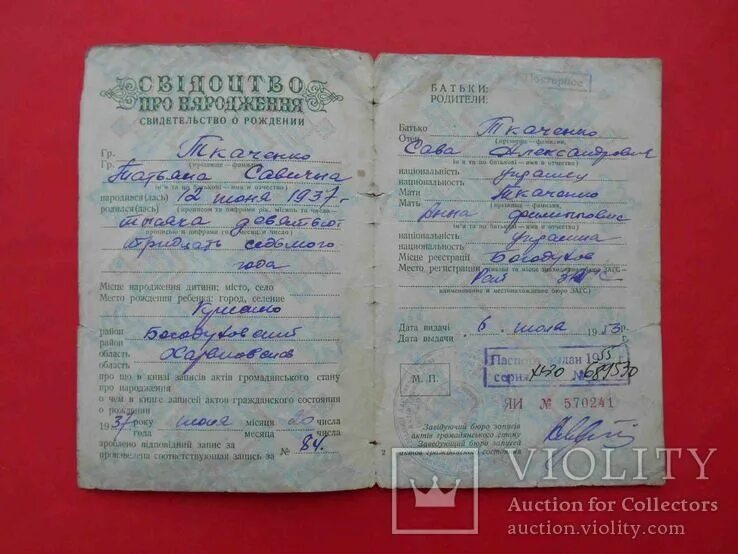 СВІДОЦТВО
ПРО НАРОДЖЕННЯ
СВИДЕТЕЛЬСТВО О РОЖДЕНИИ
Гр. Ткаченко
Гр. (прізвище — фамилия)
Татьяна Савична
(ім'я та по батькові — имя и отчество)
народився(лась) 12 июня 1937 г.
родился(лась) (прописом та цифрами рік, місяць та число)
тысяча девятьсот
прописью и цифрами год, месяц и число)
тридцать седьмого
года
Місце народження дитини: місто, село
Место рождения ребенка: город, селение
район Богодуховский
район
область Харьковская
область
про що в книзі записів актів громадянського стану
про народження
о чем в книге записей актов гражданского состояния
о рождении
1937 року июня місяця 20 числа
года месяца числа
зроблено відповідний запис за № 84
произведена соответствующая запись за
Повторное
БАТЬКИ:
РОДИТЕЛИ:
Батько Ткаченко
Отец (прізвище — фамилия,
Сава Александрович
ім'я та по батькові — имя и отчество)
національність украинец
национальность
Мати Ткаченко
Мать (прізвище — фамилия,
Анна Филипповна
ім'я та по батькові — имя и отчество)
національність украинка
национальность
Місце реєстрації Богодухов
Место регистрации (назва та місце знаходження бюро ЗАГС —
Рай ЗАГС
наименование и местонахождение бюро ЗАГС)
Дата видачі 6 июля 1953 г.
Дата выдачи
Паспорт выдан 1955 г
серия № 689530
М. П.
ЯИ № 570241
Завідуючий бюро записів
актів громадянського стану
Заведующий бюро записей
актов гражданского состояния
2
VIOLITY
Auction for Collectors
auction.violity.com